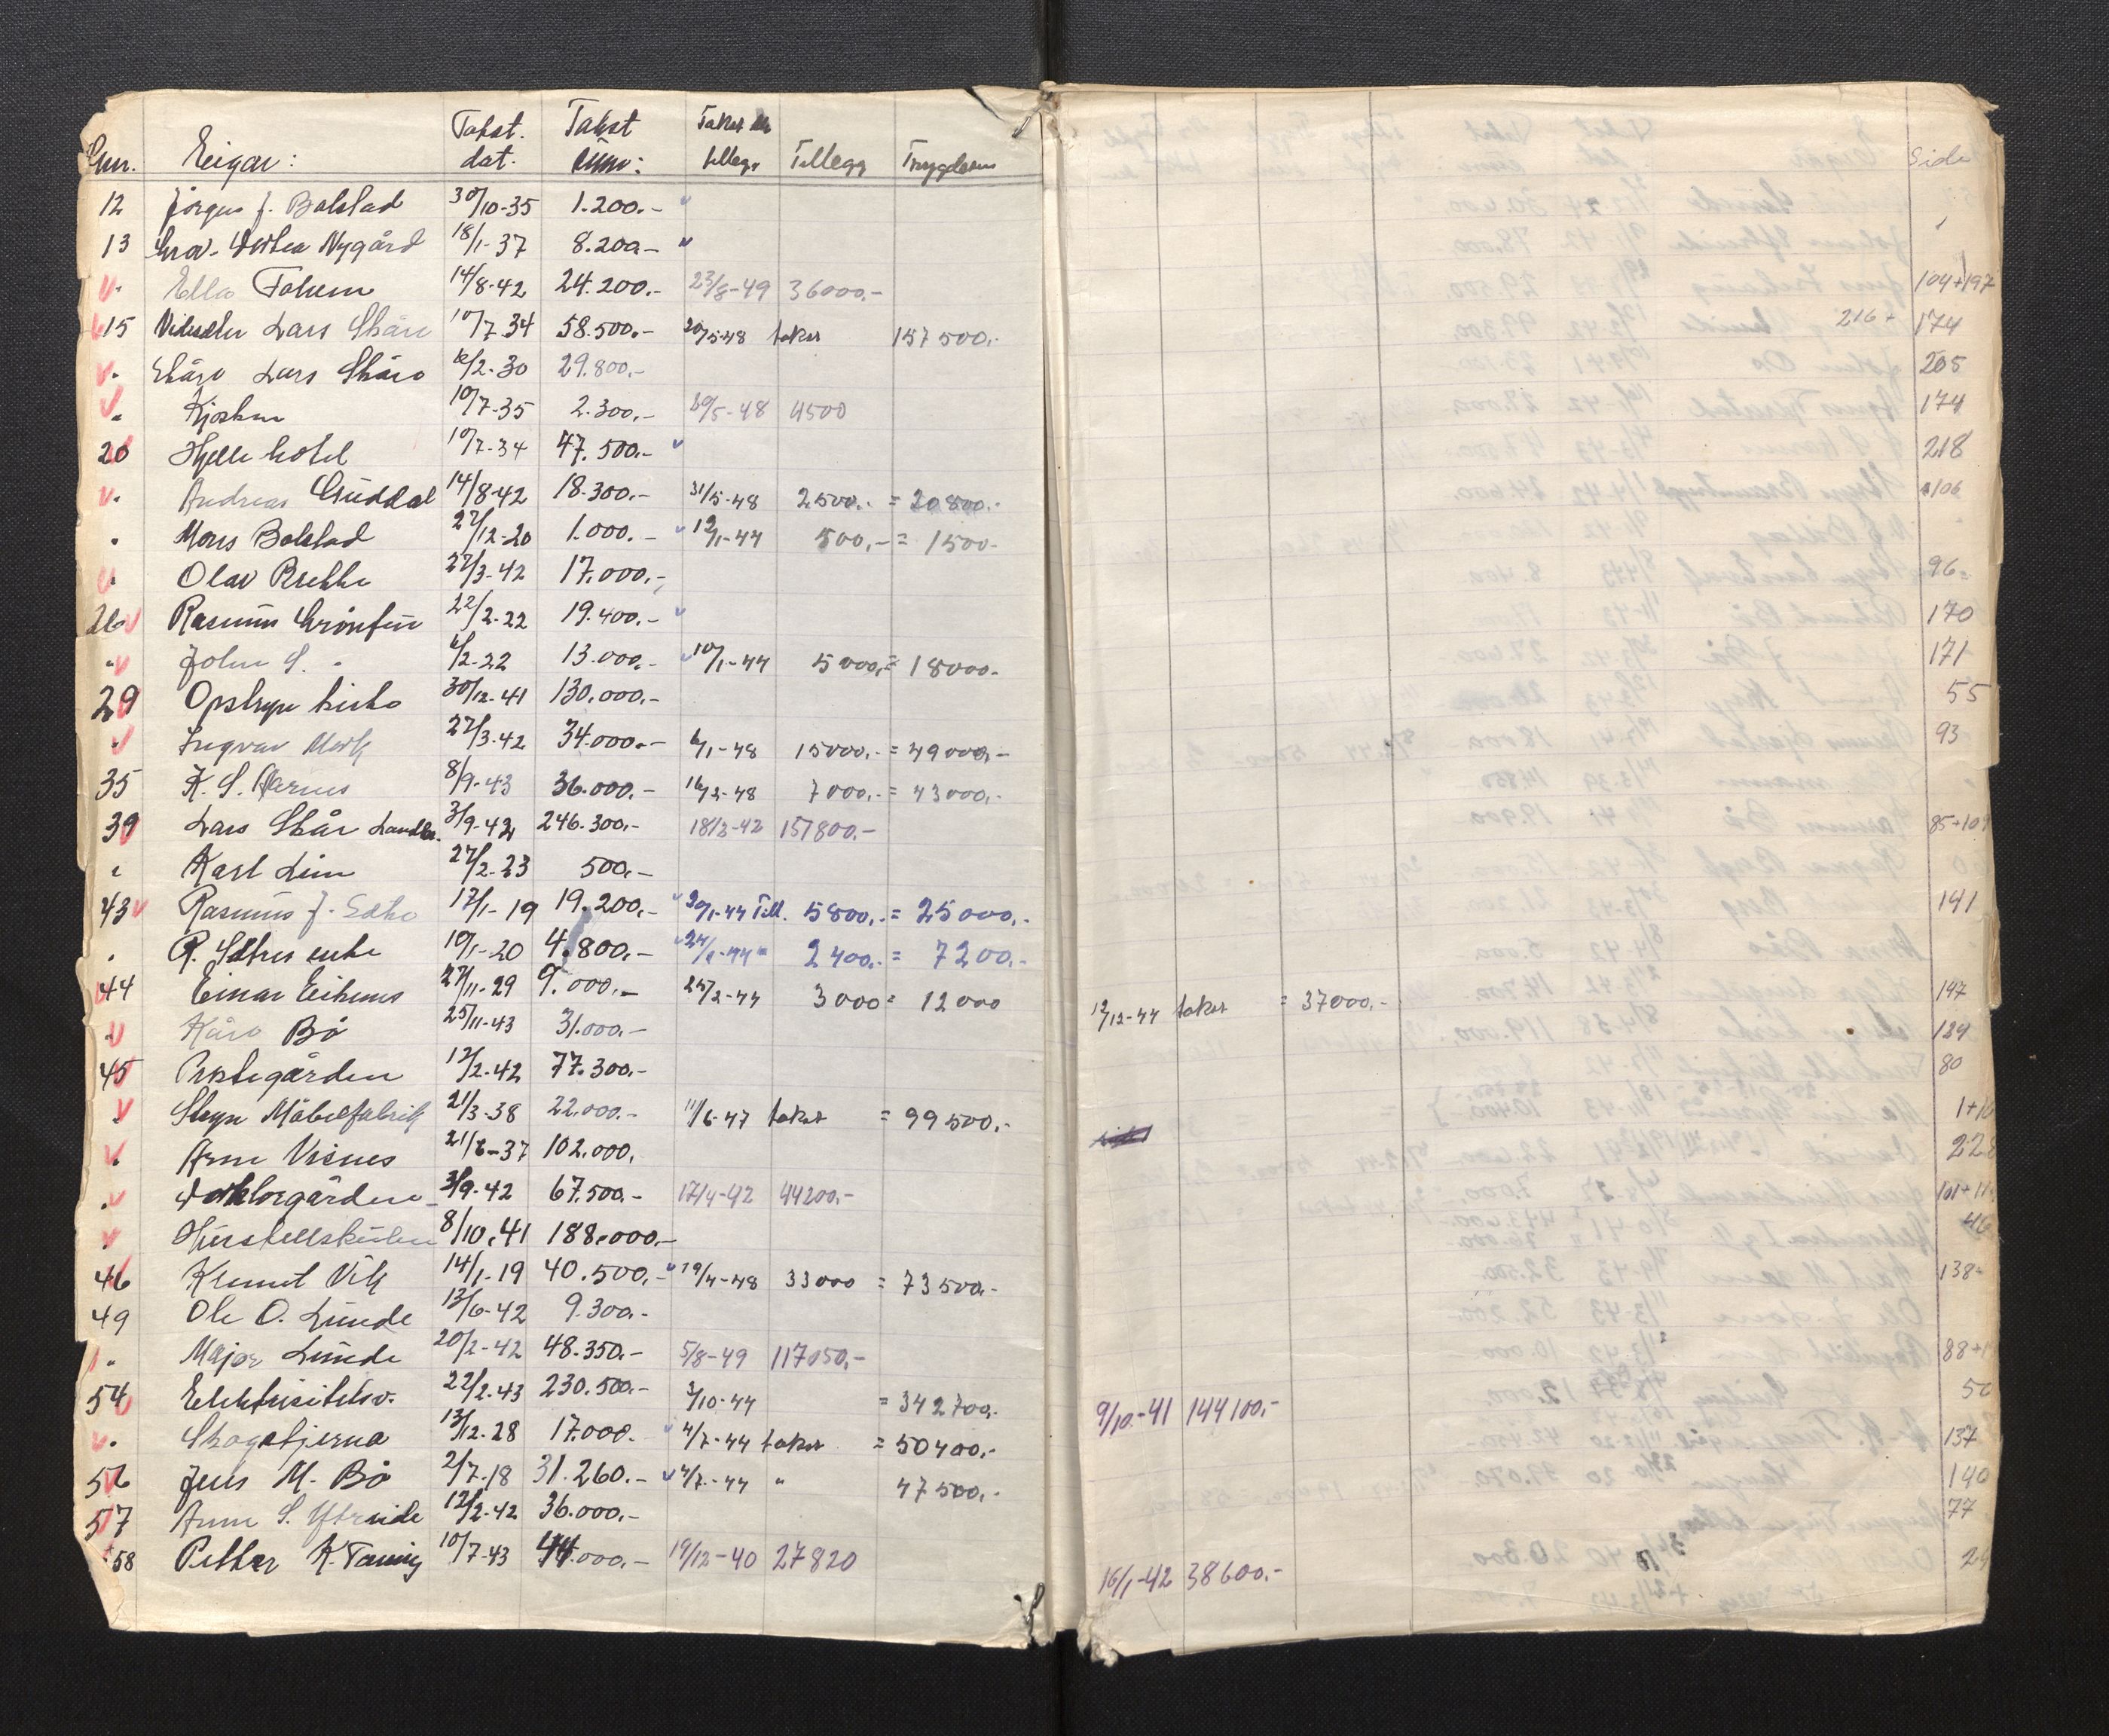 Gnr. Eigar: Takst. dat. Takst sum: Takst tillegg Tillegg Trygdesum Side
12 Jørgen J. Bolstad 30/10-35 1.200.-
13 Nygård 18/1-37 8.200.-
" Ella Tolum 14/8-42 24.200.- 23/8-49 36000.- 104+197
15 Lars Skåre 10/7-34 58.500.- 20/5-48 takst 157500.- 216+ 174
" Lars Skåre /2-30 29.800.- 205
" 10/7-35 2.300.- 20/5-48 4500 174
20 Hjelle hotel 10/7-34 47.500.- 218
" Andreas Guddal 14/8-42 18.300.- 31/5-48 2500.- = 20800.- 106
" Mons Bolstad 27/12-20 1.000.- 12/1-44 500.- = 1500-
" Olav Brekke 27/3-42 17.000.- 96
26 Rasmus 22/2-22 19.400.- 170
" John S. " 6/2-22 13.000.- 10/1-44 5000.- = 18000- 171
29 Opstryn kirke 30/12-41 130.000.- 55
" Ingvar Mork 27/3-42 34.000.- 6/1-48 15000.- = 49000.- 93
35 K. S. Aarnes 8/9-43 36.000.- 16/2-48 7000.- = 43000.-
39 Lars Skår 3/9-42 246.300.- 18/2-42 157800.- 85+10
" Karl Lien 27/2-23 500.-
43 Rasmus J. 17/1-19 19.200.- 20/1-44 Till. 5800.- = 25000.- 141
" R. enke 10/1-20 4.800.- 24/1-44 " 2400.- = 7200.-
44 Einar Eikenes 27/11-29 9.000.- 25/2-44 3000 = 12000 12/12-44 takst = 37000.- 147
" Kåre Bø 25/11-43 31.000.- 129
45 Prestegården 12/2-42 77.300.- 80
" Stryn Møbelfabrik 21/3-38 22.000.- 11/6-47 takst = 99500.- 1+10
" Arne Visnes 21/6-37 102.000. 228
" Doktorgården 3/9-42 67.500.- 17/4-42 44200.- 101+11
" 8/10.41 188.000.- 46
46 Krumt Vik 14/1-19 40.500.- 19/4-48 33000 = 73500.- 138
49 Ole O. Lunde 13/6-42 9.300.-
" Major Lunde 20/2-42 48.350.- 5/8-49 117050.- 88+1
54 Elektrisitetsv. 22/2-43 230.500.- 3/10-44 = 342700.- 9/10-41 144100.- 50
" Skogstjerna 13/12-28 17.000. 4/7-44 takst = 50400.- 137
56 Jens M. Bø 2/7-18 31.260.- 4/7-44 " 47500.- 140
57 Anne S. Ytreeide 12/2-42 36.000.- 77
58 Petter K. Taning 10/7-43 44.000.- 19/12-40 27820 16/1-42 38600.- 29